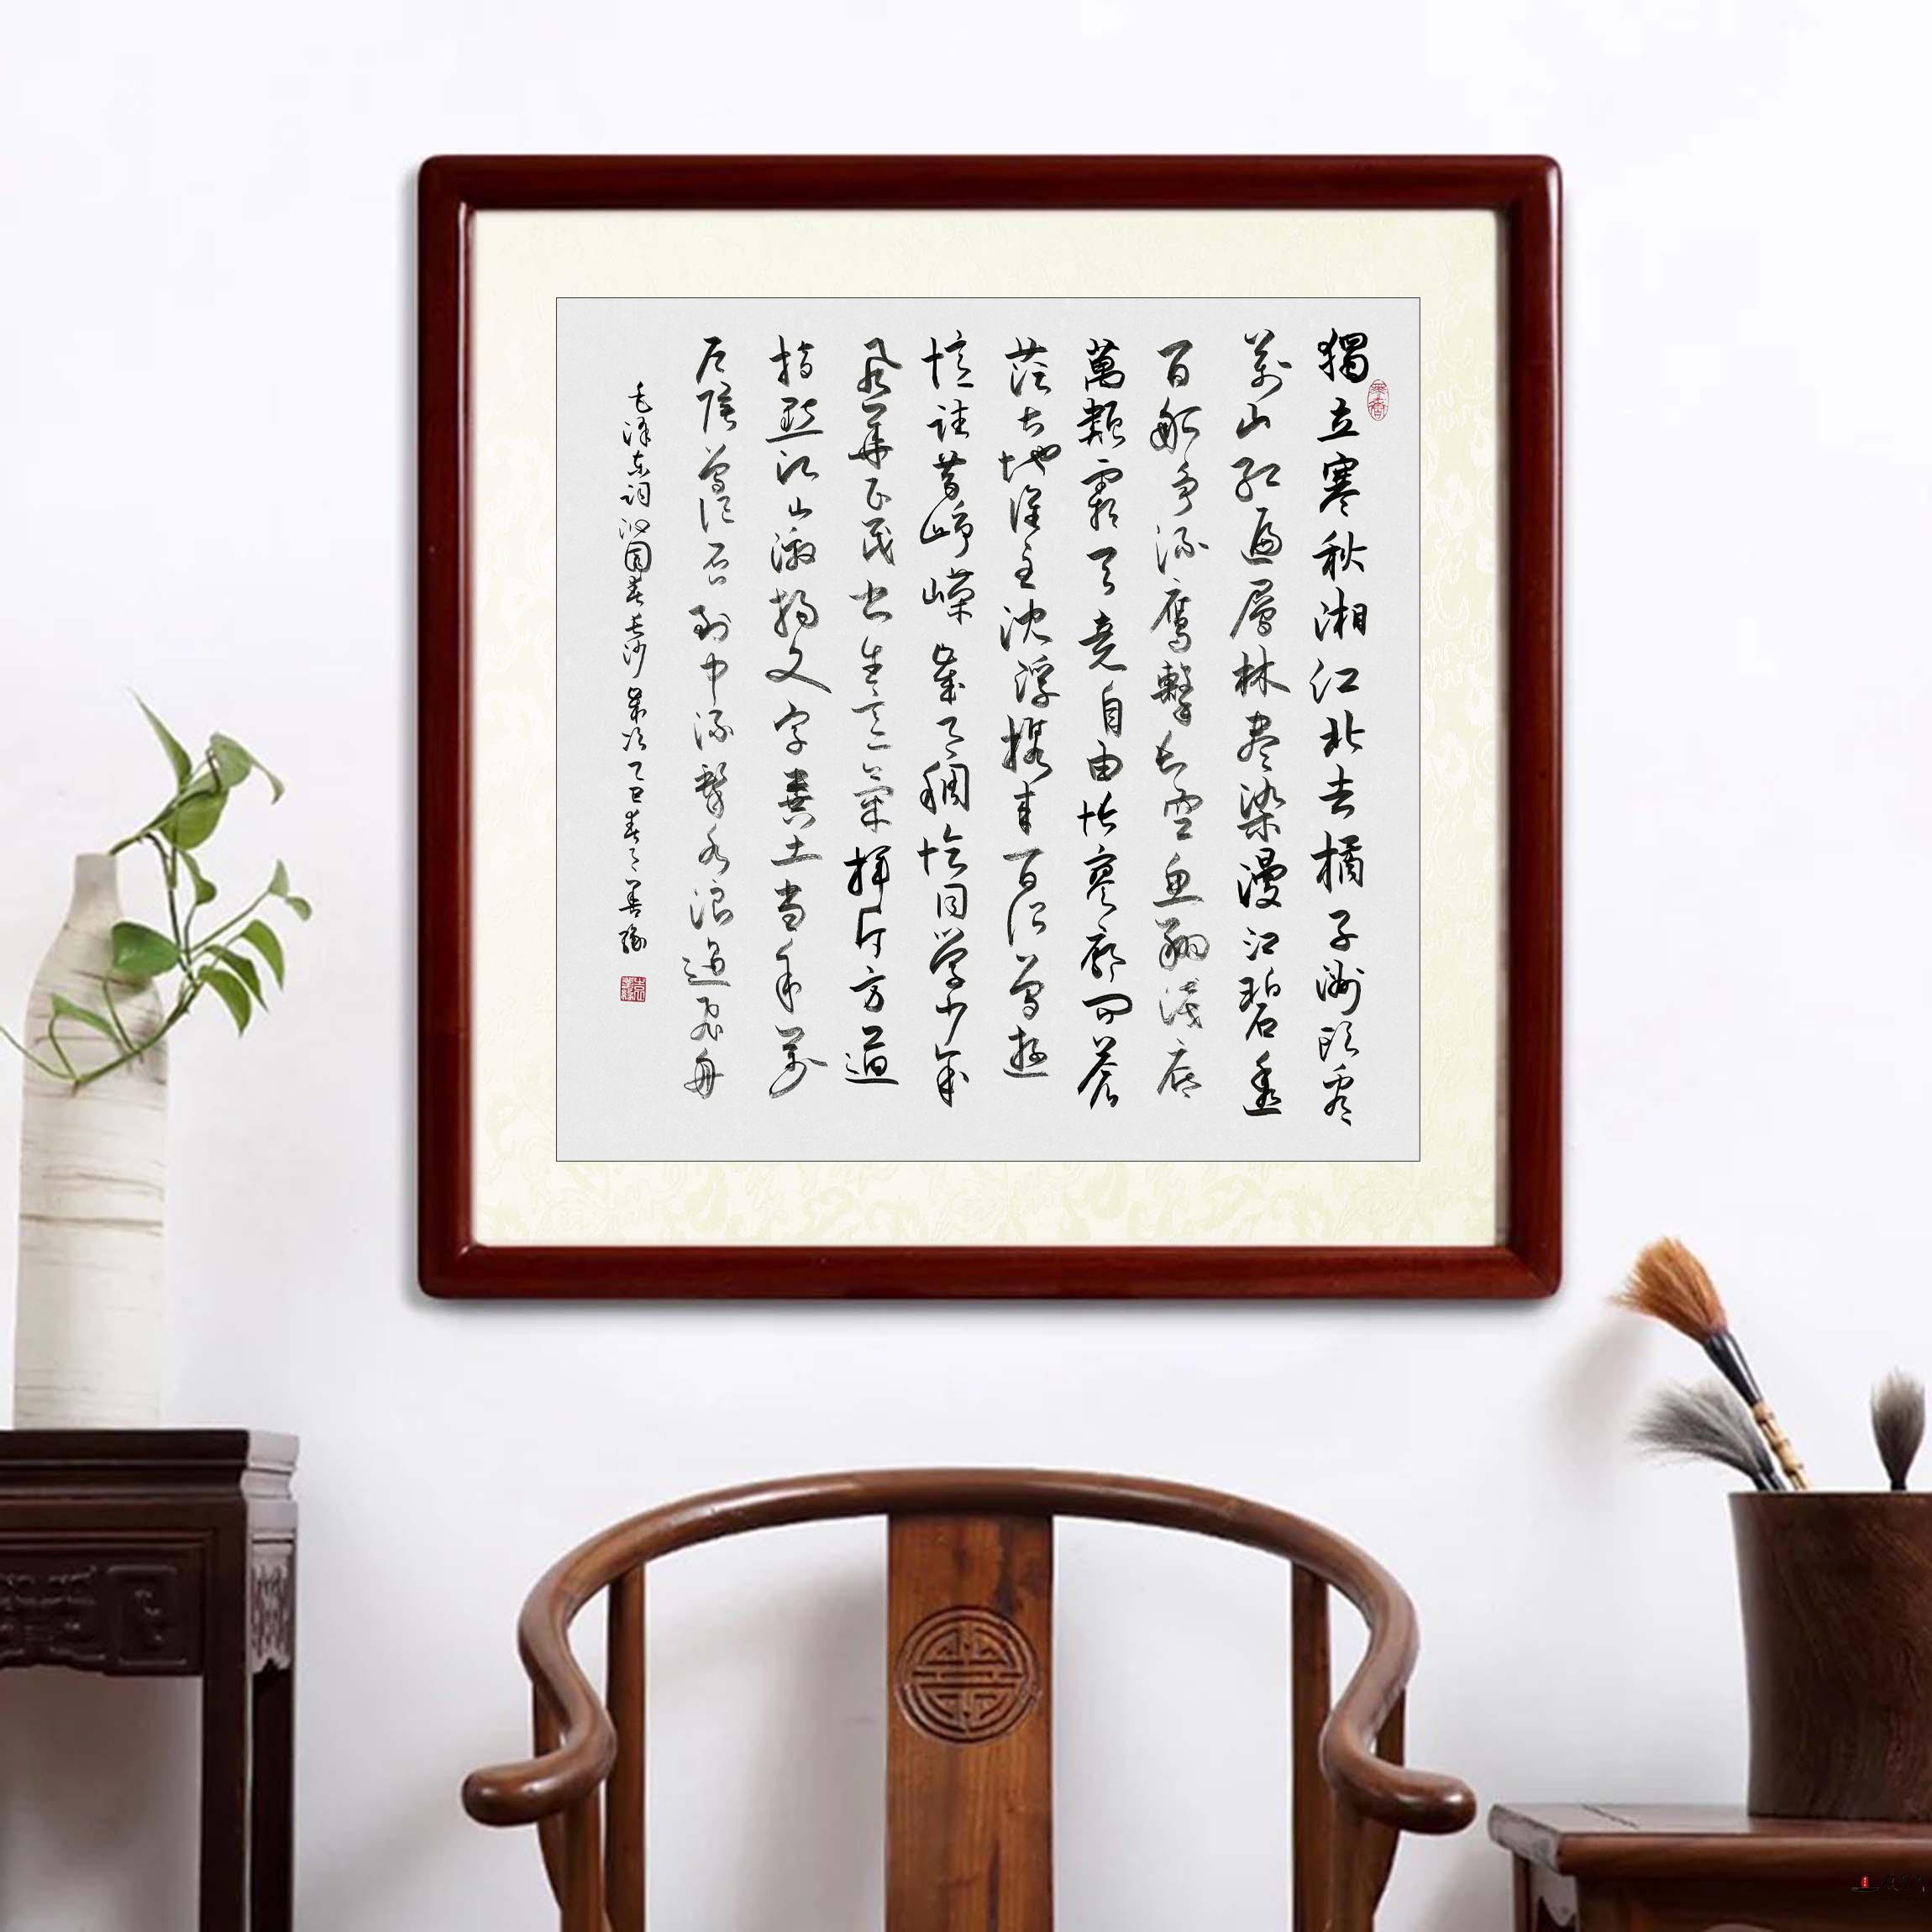 獨立寒秋湘江北去橘子洲頭看
萬山紅遍層林盡染漫江碧透
百舸爭流鷹擊長空魚翔淺底
萬類霜天競自由悵寥廓問蒼
茫大地誰主沈浮攜來百侶曾遊
憶往昔崢嶸歲月稠恰同學少年
風華正茂書生意氣揮斥方遒
指點江山激揚文字糞土當年萬
戶侯曾記否到中流擊水浪遏飛舟
毛澤東詞沁園春長沙歲次乙巳春月